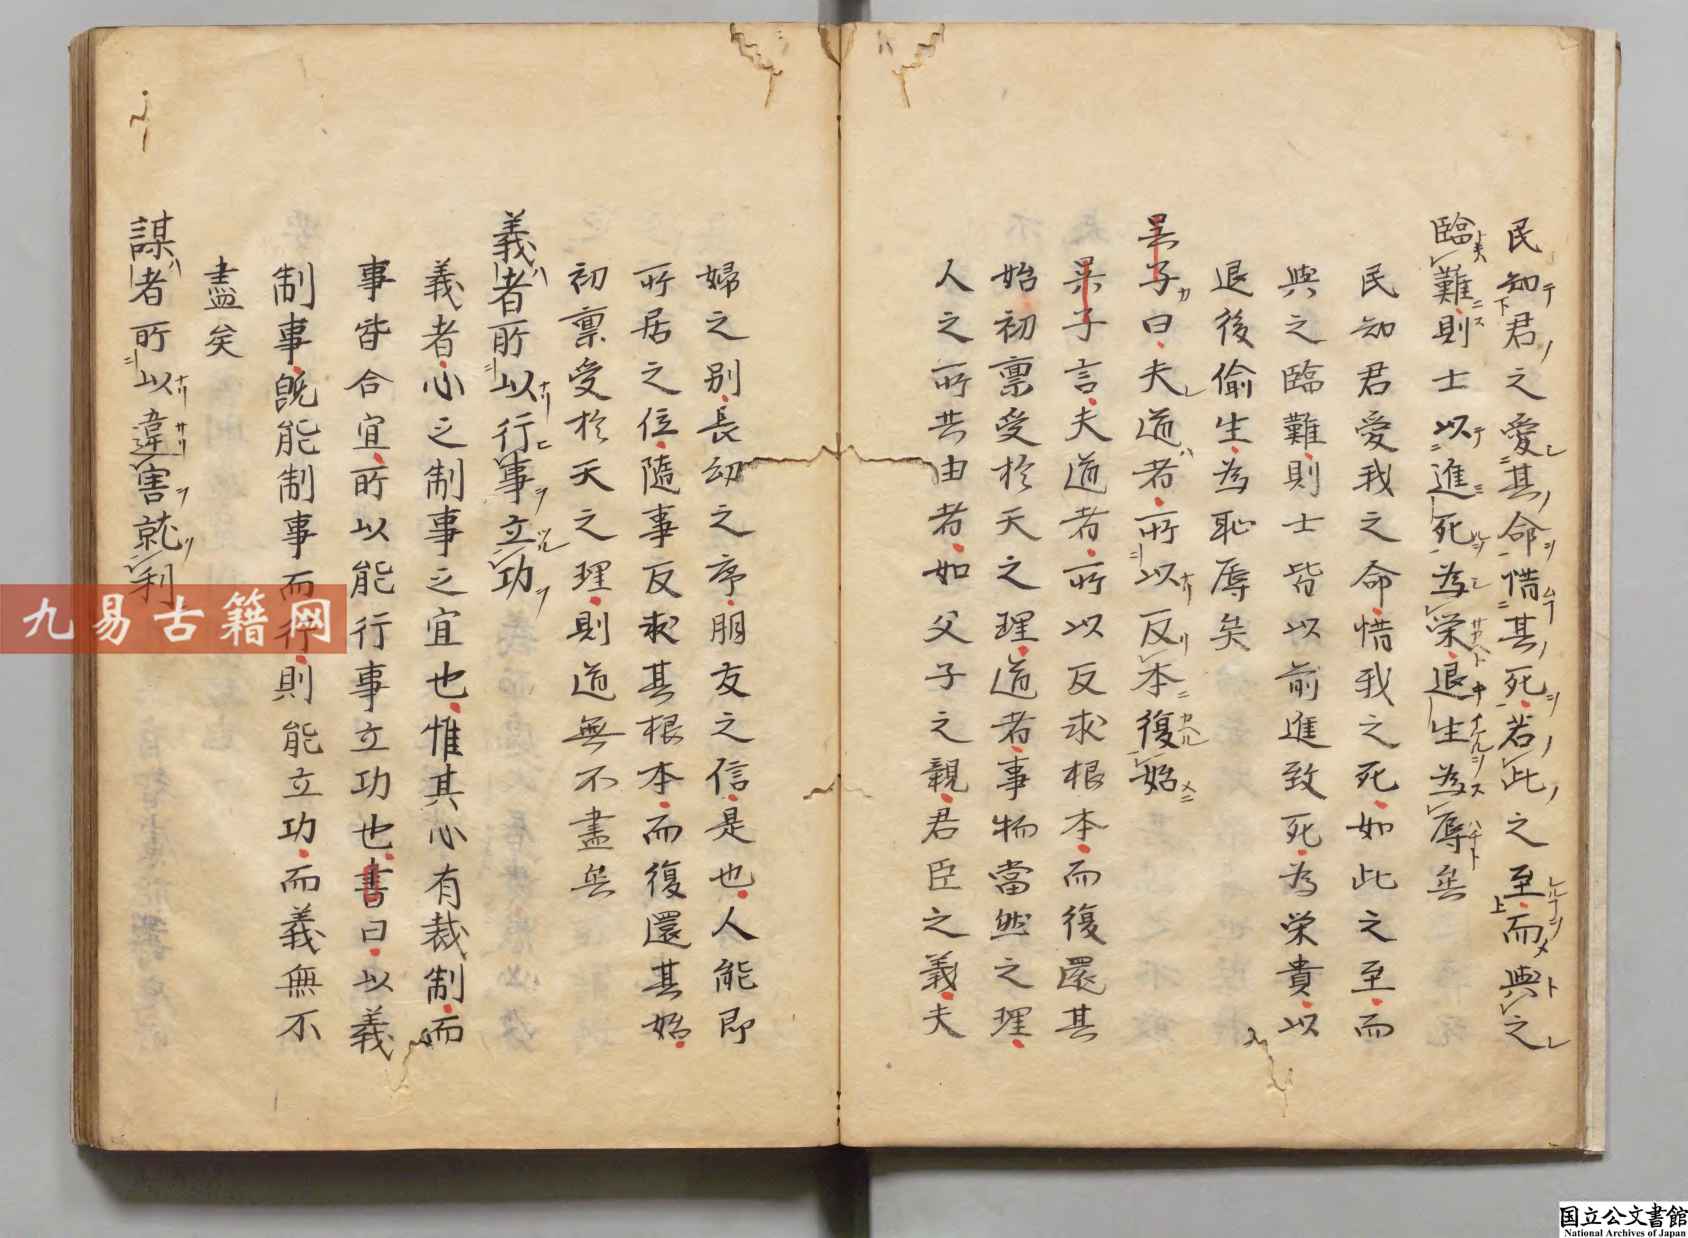 民知君之愛其命惜其死若此之至而與之
臨難則士以進死為栄退生為辱矣
民知君愛我之命惜我之死如此之至而
與之臨難則士皆以前進致死為栄貴以
退後偷生為恥辱矣
吴子曰夫道者所以反本復始
吴子言夫道者所以反求根本而復還其
始初禀受於天之理道者事物當然之理
人之所共由者如父子之親君臣之義夫
婦之别長幼之序朋友之信是也人能即
所居之位隨事反求其根本而復還其始
初禀受於天之理則道無不盡矣
義者所以行事立功
義者心之制事之宜也惟其心有裁制而
事皆合宜所以能行事立功也書曰以義
制事既能制事而行則能立功而義無不
盡矣
謀者所以違害就利
九易古籍网
国立公文書館
National Archives of Japan